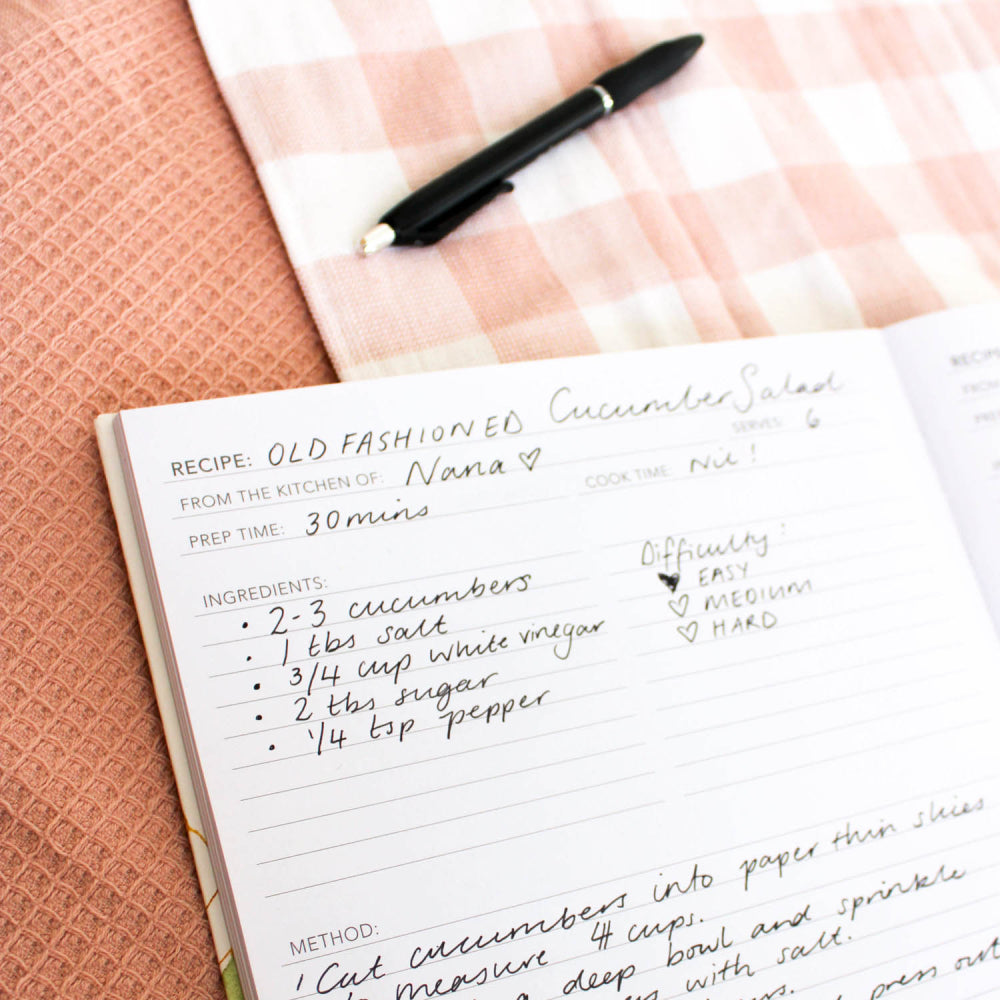 RECIPE: OLD FASHIONED Cucumber Salad
FROM THE KITCHEN OF: Nana ♡ SERVES: 6
PREP TIME: 30mins COOK TIME: Nil!
INGREDIENTS:
• 2-3 cucumbers
• 1 tbs salt
• 3/4 cup white vinegar
• 2 tbs sugar
• 1/4 tsp pepper
Difficulty:
♥ EASY
♡ MEDIUM
♡ HARD
METHOD:
1 Cut cucumbers into paper thin slices
measure 4 cups.
a deep bowl and sprinkle
with salt.
press out
RECIP
FROM